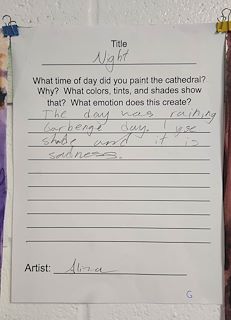 Title
Night
What time of day did you paint the cathedral?
Why? What colors, tints, and shades show
that? What emotion does this create?
The day was raining
Garbenge day. I use
shade and it is
sadness.
Artist: Alina
G